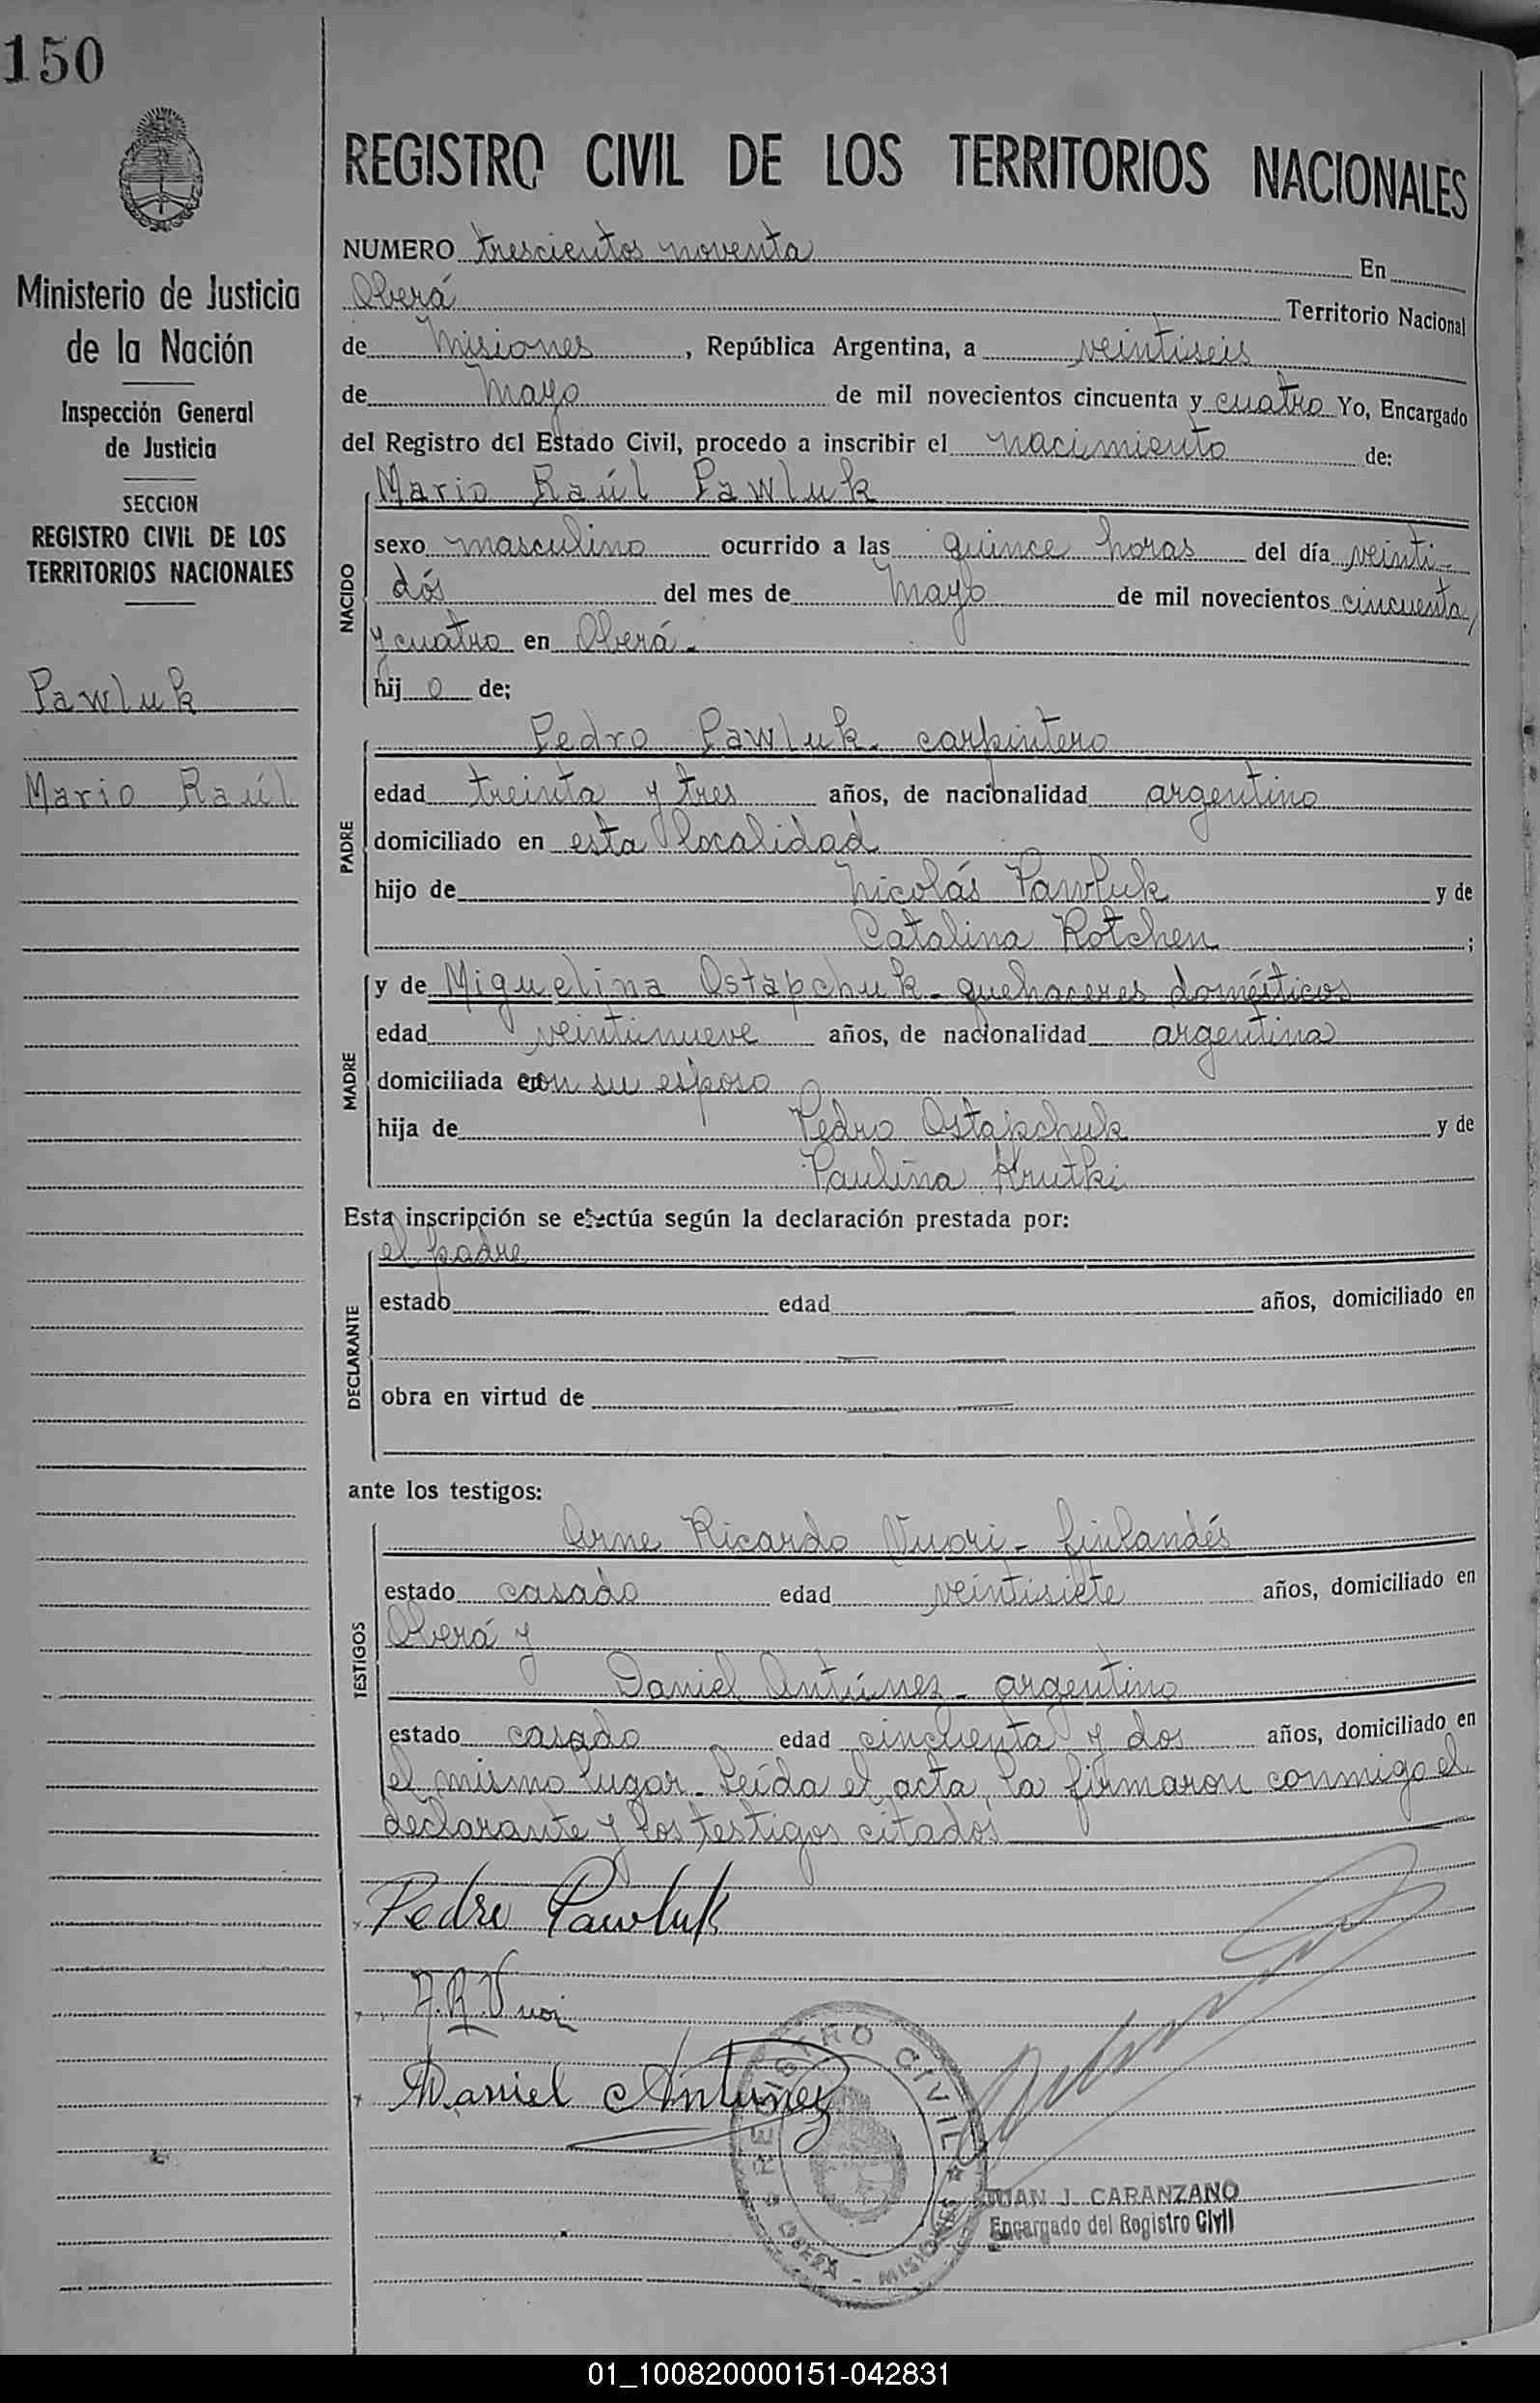 150
REGISTRO CIVIL DE LOS TERRITORIOS NACIONALES
Ministerio de Justicia
de la Nación
Inspección General
de Justicia
SECCION
REGISTRO CIVIL DE LOS
TERRITORIOS NACIONALES
Pawluk
Mario Raúl
NUMERO trescientos noventa En
Oberá Territorio Nacional
de Misiones, República Argentina, a veintiseis
de Mayo de mil novecientos cincuenta y cuatro Yo, Encargado
del Registro del Estado Civil, procedo a inscribir el nacimiento de:
NACIDO
Mario Raúl Pawluk
sexo masculino ocurrido a las quince horas del día veinti-
dós del mes de Mayo de mil novecientos cincuenta
y cuatro en Oberá.-
hijo de;
PADRE
Pedro Pawluk. carpintero
edad treinta y tres años, de nacionalidad argentino
domiciliado en esta localidad
hijo de Nicolás Pawluk y de
Catalina Rotchen;
MADRE
y de Miguelina Ostapchuk- quehaceres domésticos
edad veintinueve años, de nacionalidad argentina
domiciliada con su esposo
hija de Pedro Ostapchuk y de
Paulina Krutki
Esta inscripción se efectúa según la declaración prestada por:
DECLARANTE
el padre
estado — edad — años, domiciliado en
— —
obra en virtud de — —
ante los testigos:
TESTIGOS
Arne Ricardo Vuori- finlandés
estado casado edad veintisiete años, domiciliado en
Oberá y
Daniel Antúnez- argentino
estado casado edad cincuenta y dos años, domiciliado en
el mismo lugar. Leída el acta, la firmaron conmigo el
declarante y los testigos citados
Pedro Pawluk
A.R. Vuori
Daniel Antunez
REGISTRO CIVIL
OBERA - MISIONES
JUAN J. CARANZANO
Encargado del Registro Civil
01_100820000151-042831